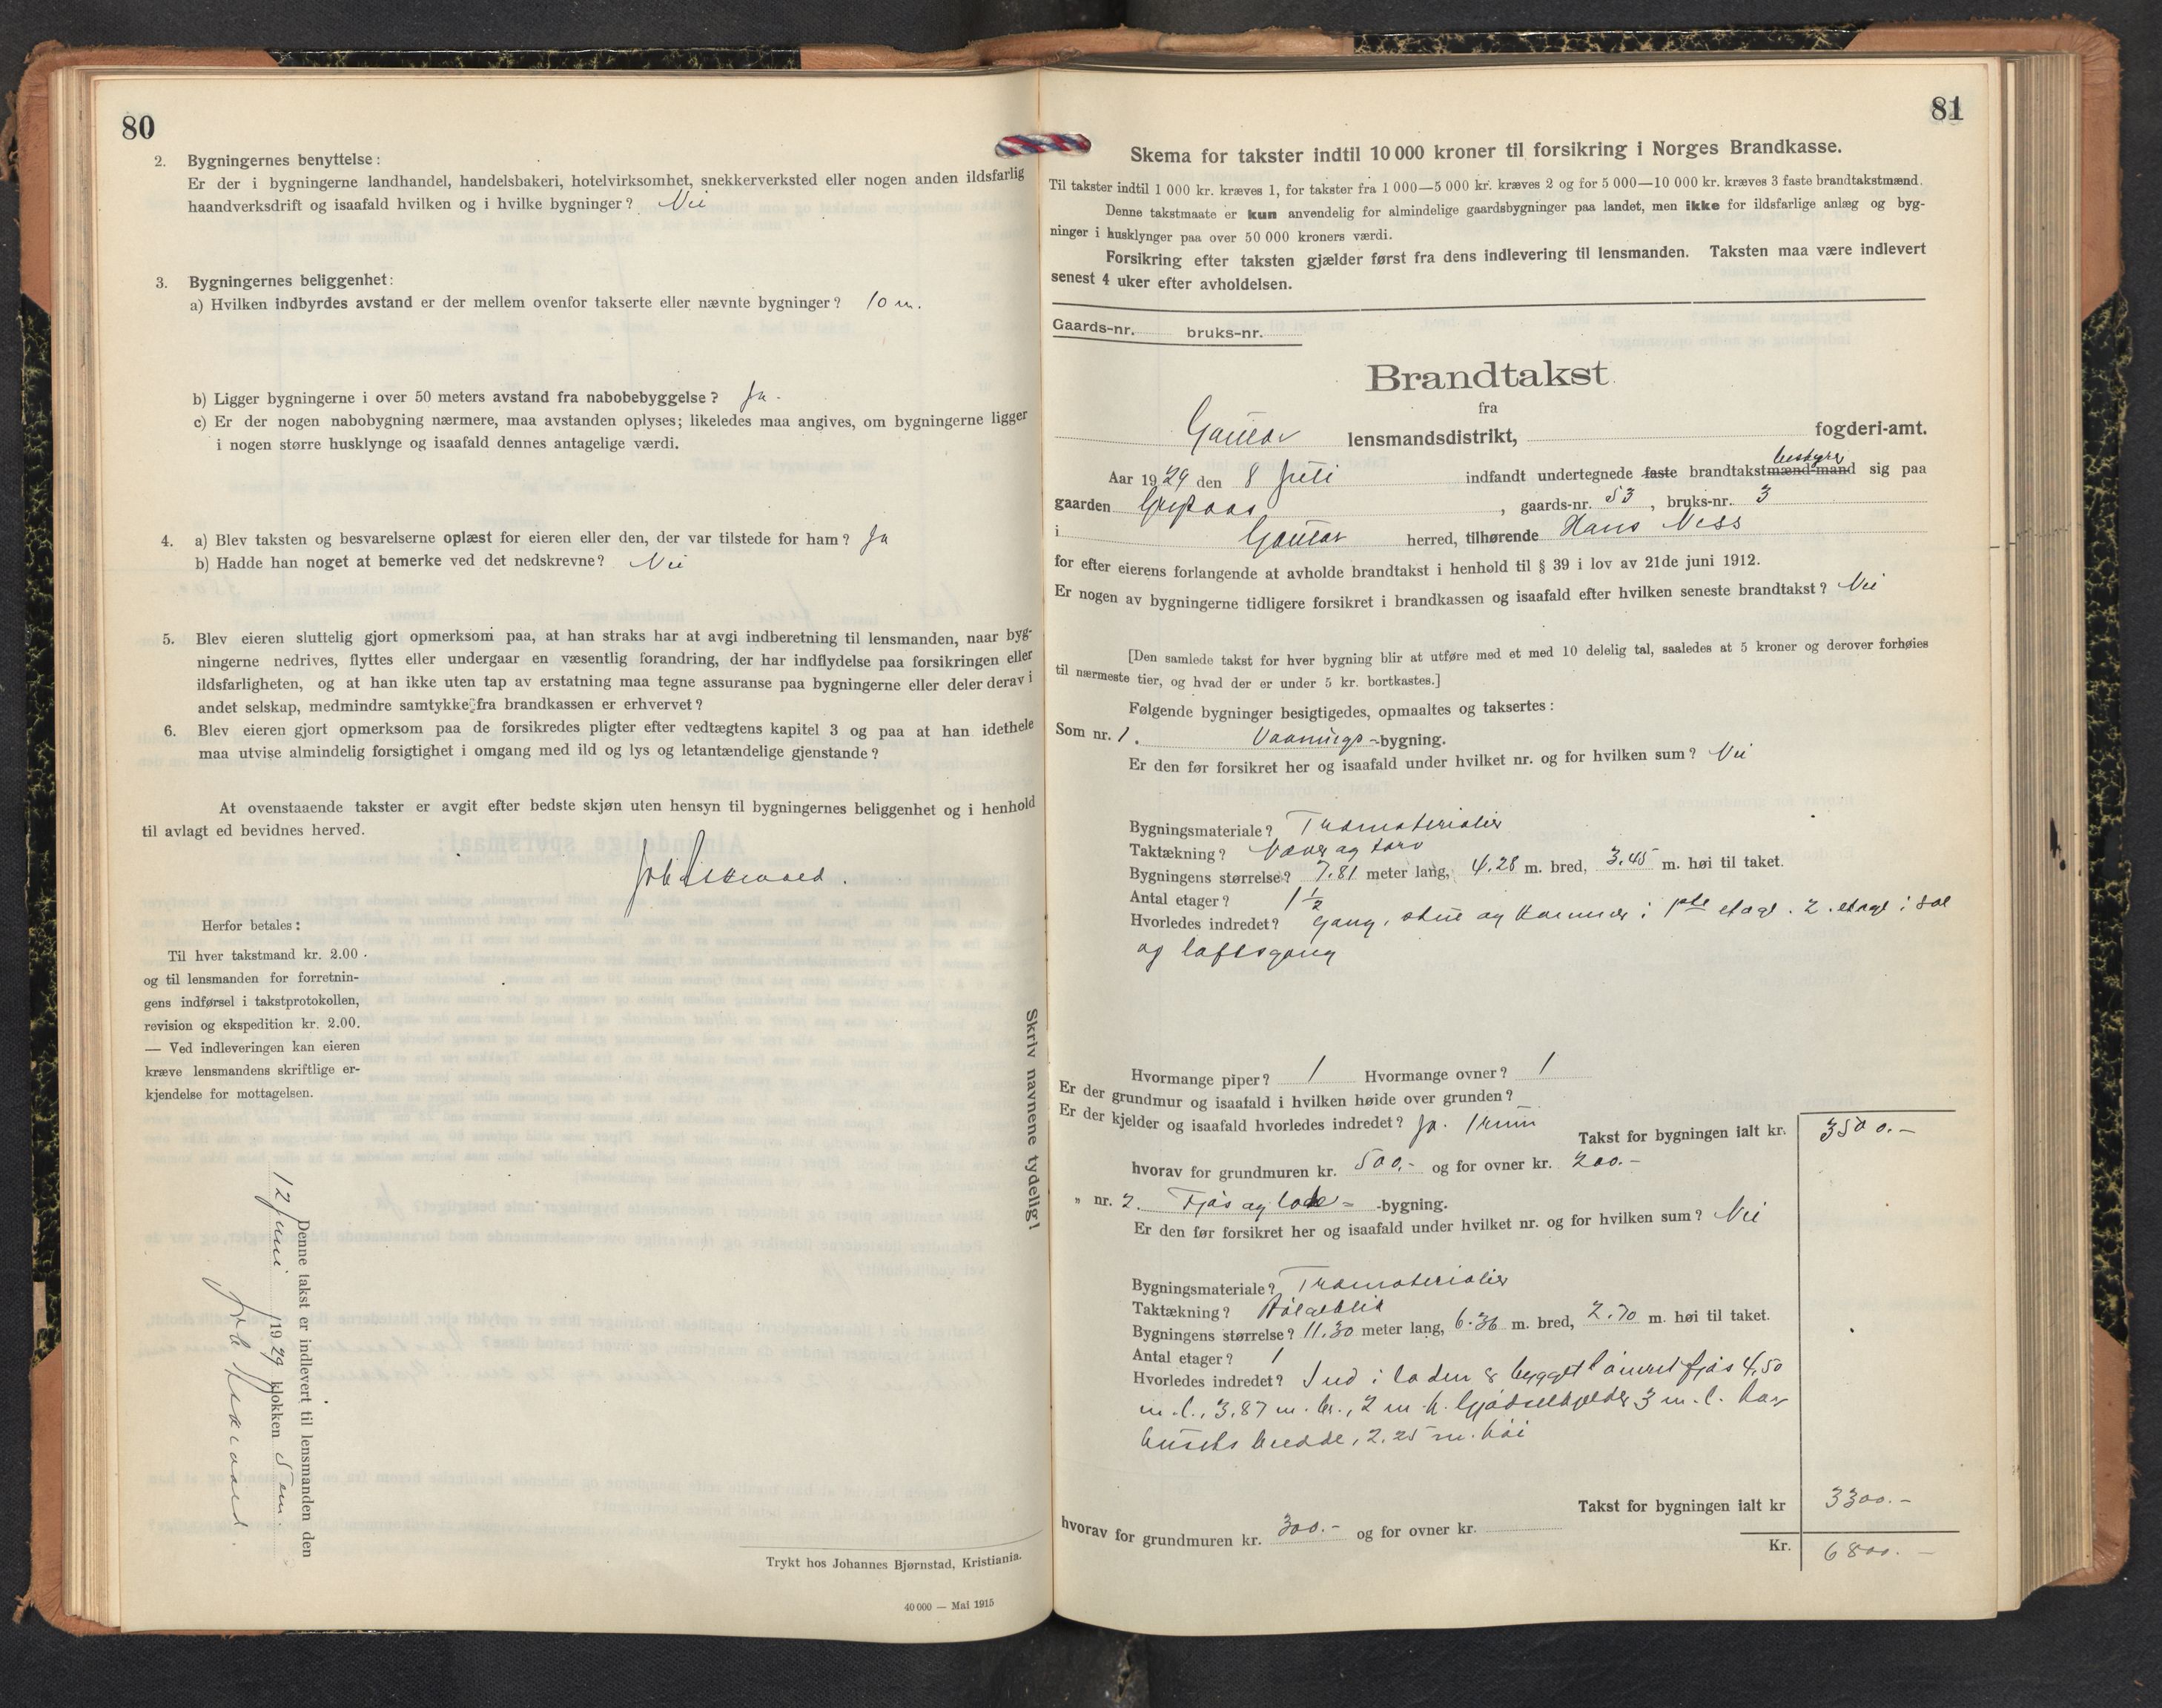 80
2. Bygningernes benyttelse:
Er der i bygningerne landhandel, handelsbakeri, hotelvirksomhet, snekkerverksted eller nogen anden ildsfarlig
haandverksdrift og isaafald hvilken og i hvilke bygninger? Nei
3. Bygningernes beliggenhet:
a) Hvilken indbyrdes avstand er der mellem ovenfor takserte eller nævnte bygninger? 10 m.
b) Ligger bygningerne i over 50 meters avstand fra nabobebyggelse? Ja.
c) Er der nogen nabobygning nærmere, maa avstanden oplyses; likeledes maa angives, om bygningerne ligger
i nogen større husklynge og isaafald dennes antagelige værdi.
4. a) Blev taksten og besvarelserne oplæst for eieren eller den, der var tilstede for ham? Ja
b) Hadde han noget at bemerke ved det nedskrevne? Nei
5. Blev eieren sluttelig gjort opmerksom paa, at han straks har at avgi indberetning til lensmanden, naar byg-
ningerne nedrives, flyttes eller undergaar en væsentlig forandring, der har indflydelse paa forsikringen eller
ildsfarligheten, og at han ikke uten tap av erstatning maa tegne assuranse paa bygningerne eller deler derav i
andet selskap, medmindre samtykke fra brandkassen er erhvervet?
6. Blev eieren gjort opmerksom paa de forsikredes pligter efter vedtægtens kapitel 3 og paa at han idethele
maa utvise almindelig forsigtighet i omgang med ild og lys og letantændelige gjenstande?
At ovenstaaende takster er avgit efter bedste skjøn uten hensyn til bygningernes beliggenhet og i henhold
til avlagt ed bevidnes herved.
Herfor betales:
Til hver takstmand kr. 2.00.
og til lensmanden for forretnin-
gens indførsel i takstprotokollen,
revision og ekspedition kr. 2.00.
— Ved indleveringen kan eieren
kræve lensmandens skriftlige er-
kjendelse for mottagelsen.
Denne takst er indlevert til lensmanden den
12 juni 1929 klokken 5 em.
Skriv navnene tydelig!
Trykt hos Johannes Bjørnstad, Kristiania.
40 000 — Mai 1915
81
Skema for takster indtil 10 000 kroner til forsikring i Norges Brandkasse.
Til takster indtil 1 000 kr. kræves 1, for takster fra 1 000—5 000 kr. kræves 2 og for 5 000—10 000 kr. kræves 3 faste brandtakstmænd.
Denne takstmaate er kun anvendelig for almindelige gaardsbygninger paa landet, men ikke for ildsfarlige anlæg og byg-
ninger i husklynger paa over 50 000 kroners værdi.
Forsikring efter taksten gjælder først fra dens indlevering til lensmanden. Taksten maa være indlevert
senest 4 uker efter avholdelsen.
Gaards-nr. bruks-nr.
Brandtakst
fra
Gaular lensmandsdistrikt, fogderi-amt.
Aar 1929 den 8 juli indfandt undertegnede faste brandtakstmænd-mand bestyrer sig paa
gaarden , gaards-nr. 53, bruks-nr. 3
i Gaular herred, tilhørende Hans Ness
for efter eierens forlangende at avholde brandtakst i henhold til § 39 i lov av 21de juni 1912.
Er nogen av bygningerne tidligere forsikret i brandkassen og isaafald efter hvilken seneste brandtakst? Nei
[Den samlede takst for hver bygning blir at utføre med et med 10 delelig tal, saaledes at 5 kroner og derover forhøies
til nærmeste tier, og hvad der er under 5 kr. bortkastes.]
Følgende bygninger besigtigedes, opmaaltes og taksertes:
Som nr. 1. Vaanings-bygning.
Er den før forsikret her og isaafald under hvilket nr. og for hvilken sum? Nei
Bygningsmateriale? Træmaterialer
Taktækning? Næver og torv
Bygningens størrelse? 7.81 meter lang, 4.28 m. bred, 3.45 m. høi til taket.
Antal etager? 1 1/2
Hvorledes indredet? Gang, stue og kammer i 1ste etage. 2. etage i sal
og loftsgang
Hvormange piper? 1 Hvormange ovner? 1
Er der grundmur og isaafald i hvilken høide over grunden?
Er der kjelder og isaafald hvorledes indredet? Ja. 1 rum
Takst for bygningen ialt kr. 3500.-
hvorav for grundmuren kr. 500.- og for ovner kr. 200.-
" nr. 2. Fjøs og lade- -bygning.
Er den før forsikret her og isaafald under hvilket nr. og for hvilken sum? Nei
Bygningsmateriale? Træmaterialer
Taktækning? Bølgeblik
Bygningens størrelse? 11.30 meter lang, 6.36 m. bred, 2.70 m. høi til taket.
Antal etager? 1
Hvorledes indredet? Ind i laden er bygget tømret fjøs 4,50
m. l., 3,87 m. br., 2 m. h. Gjødselkjelder 3 m. l. har
husets bredde, 2.25 m. høi
Takst for bygningen ialt kr 3300.-
hvorav for grundmuren kr. 300.- og for ovner kr.
Kr. 6800.-